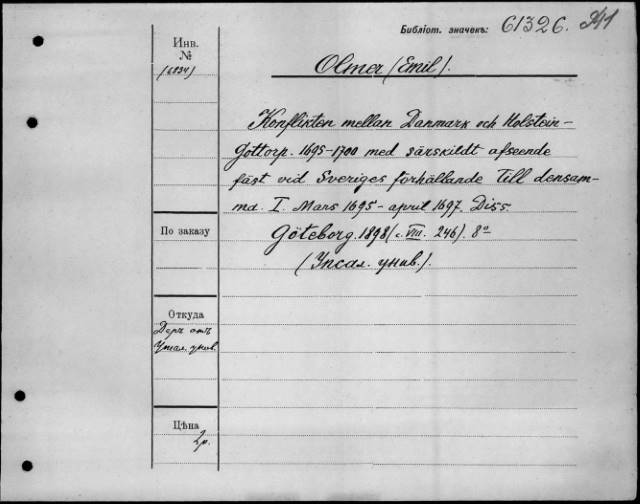 Библіот. значекъ: 61326.
Инв.
№
(6934)
Olmer (Emil).
Konflikten mellan Danmark och Holstein-
Gottorp. 1695-1700 med särskildt afseende
fäst vid Sveriges förhållande till densam-
ma. I. Mars 1695 - april 1697. Diss.
Göteborg. 1898 (c. VIII. 246). 8°
(Упсал. унив.).
По заказу
Откуда
Даръ отъ
Упсал. унив.
Цѣна
2р.